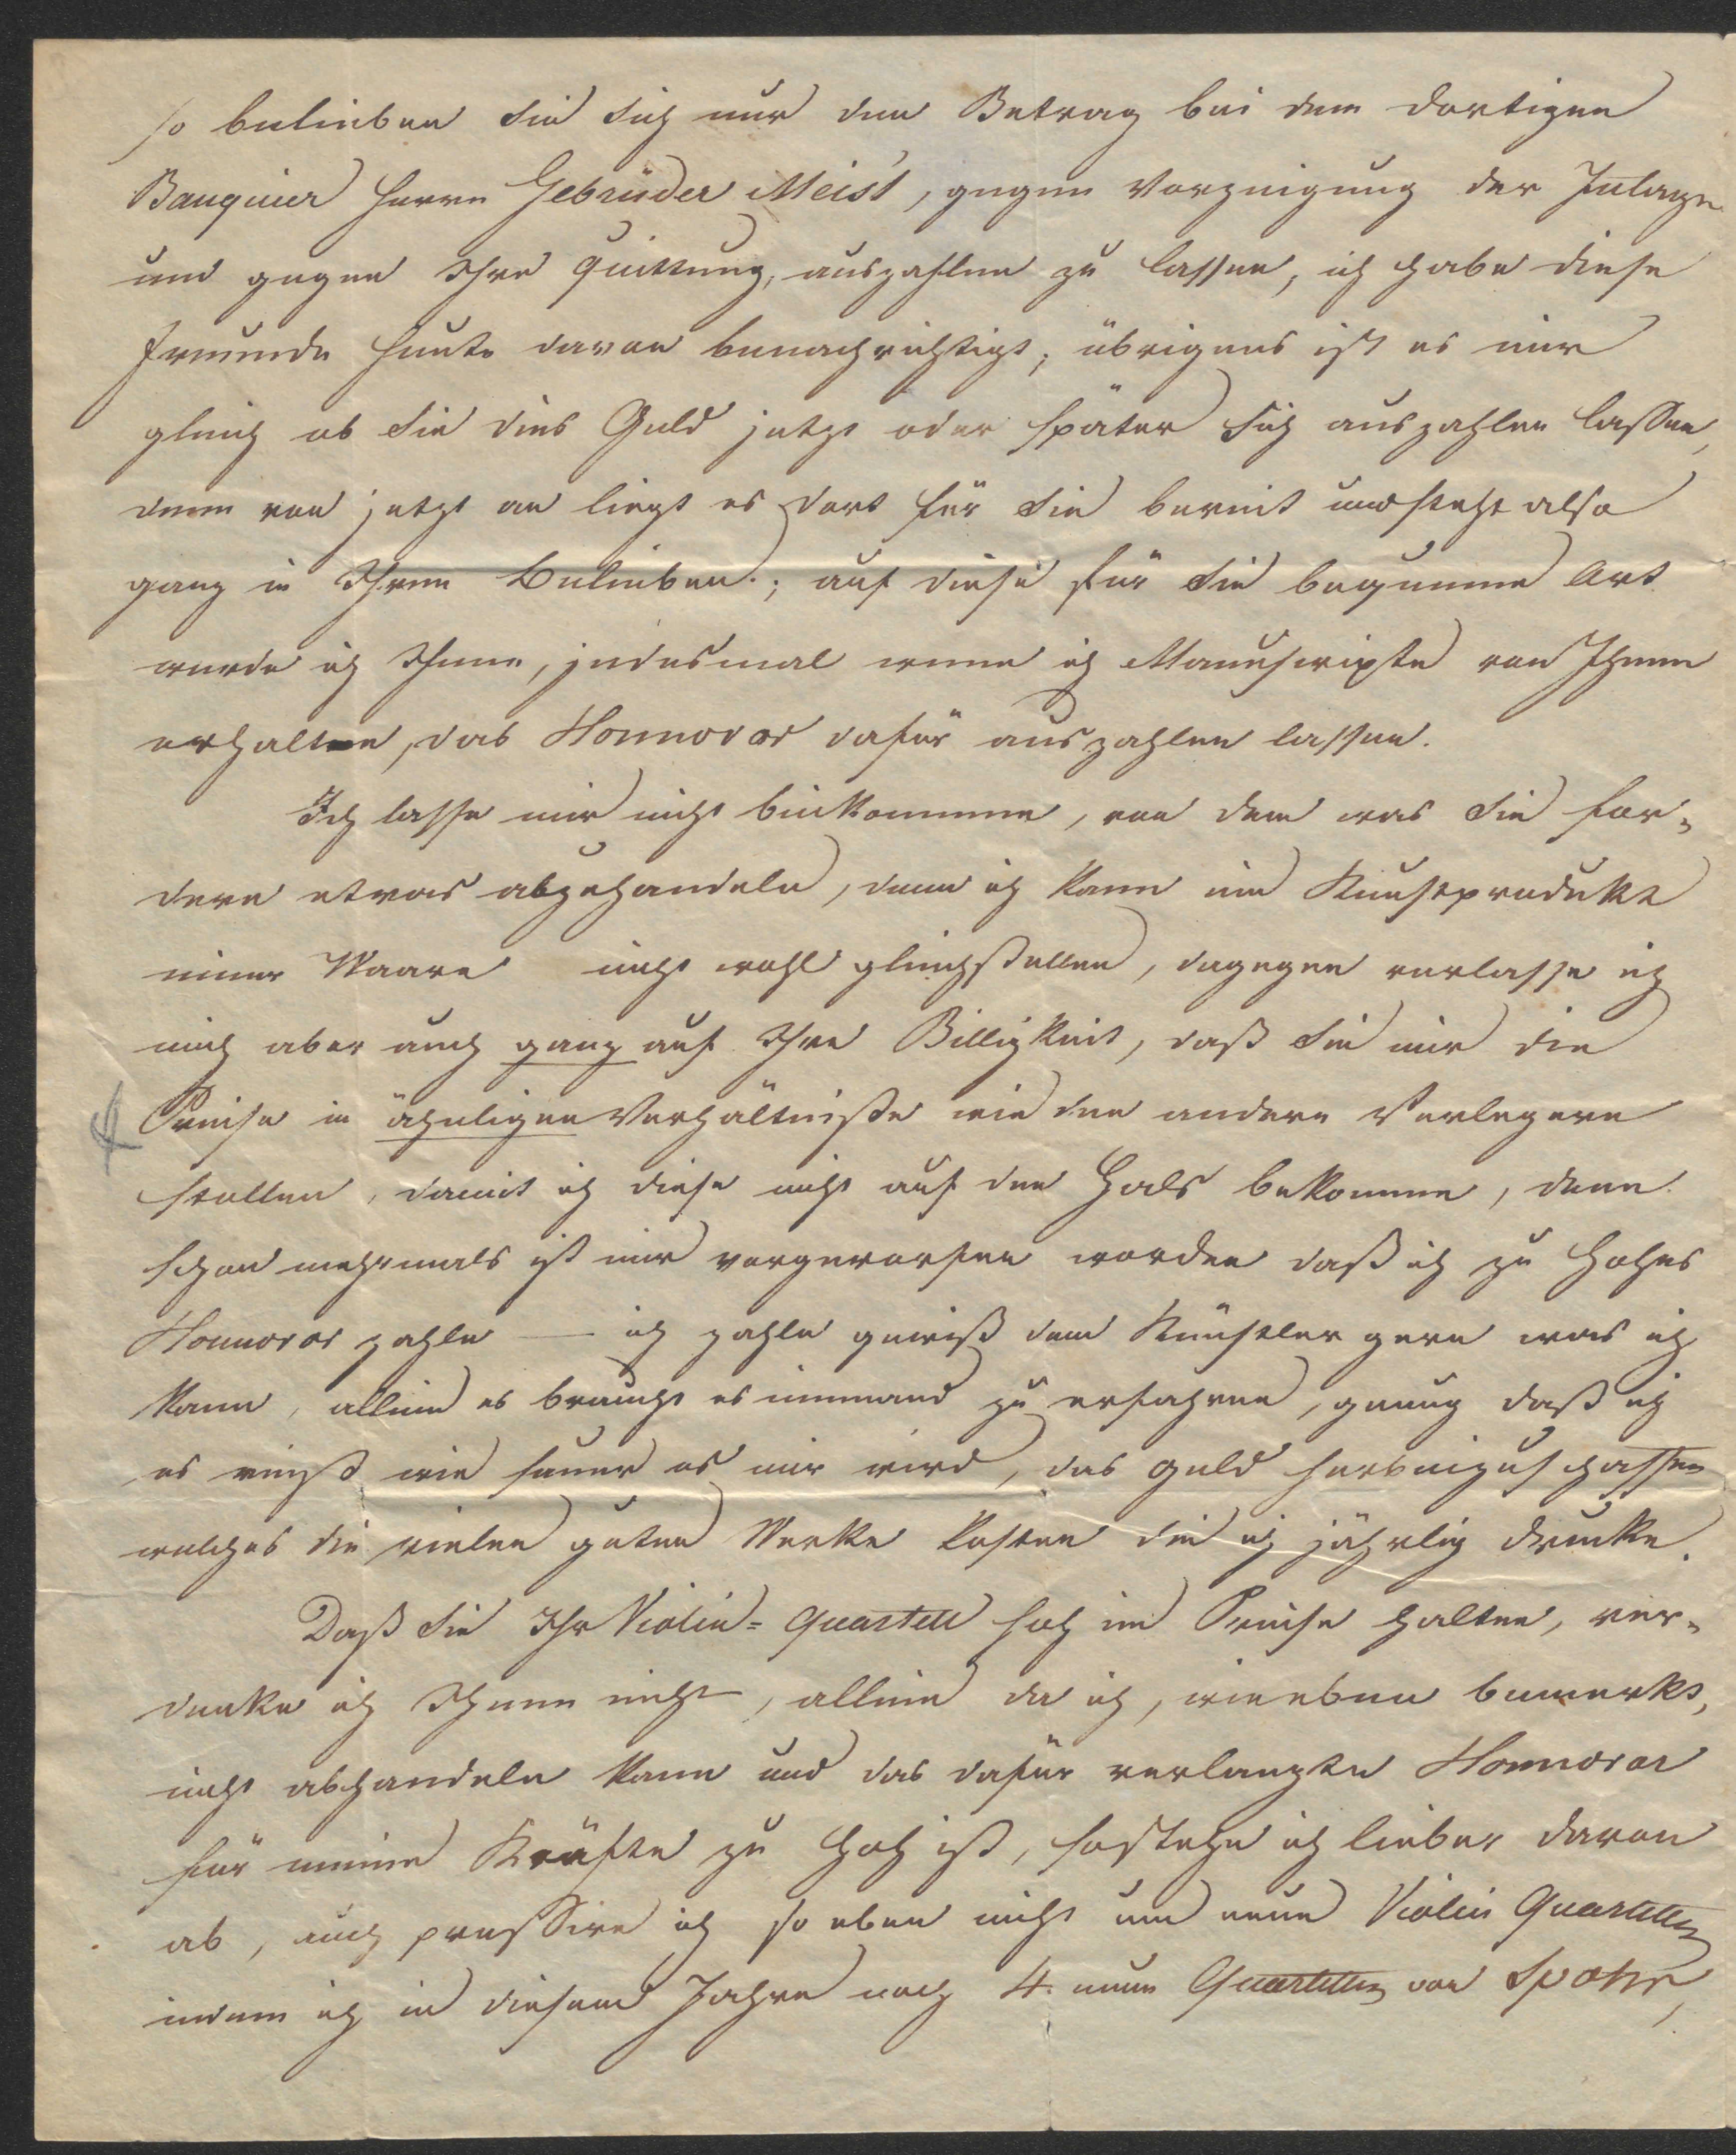 so belieben Sie Sich nur den Betrag bei dem dortigen
Banquier Herrn Gebrüder Meist, gegen Vorzeigung der Inlage
und gegen Ihre Quittung, auszahlen zu lassen, ich habe diese
Freunde heute davon benachrichtigt; übrigens ist es mir
gleich ob Sie dies Geld jetzt oder später Sich auszahlen lassen,
denn von jetzt an liegt es dort für Sie bereit und steht also
ganz in Ihrem Belieben.; auf diese für Sie bequeme Art
werde ich Ihnen, jedesmal wenn ich Manuscripte von Ihnen
erhalten, das Honnorar dafür auszahlen lassen.
Ich lasse mir nicht beikommen, von dem was Sie for-
dern etwas abzuhandeln, denn ich kann ein Kunstprodukt
einer Waare nicht wohl gleichstellen, dagegen verlasse ich
mich aber auch ganz auf Ihre Billigkeit, daß Sie mir die
Preise in ähnligen Verhältniße wie den andern Verlegern
stellen, damit ich diese nicht auf den Hals bekomme, denn
schon mehrmals ist mir vorgeworfen worden daß ich zu hohes
Honnorar zahle — ich zahle gewiß dem Künstler gern was ich
kann, allein es braucht es niemand zu erfahren, genug daß ich
es weiß wie sauer es mir wird, das Geld herbeizuschaffen
welches die vielen guten Werke kosten die ich jährlig drucke.
Daß Sie Ihr Violin-Quartett hoch im Preise halten, ver-
denke ich Ihnen nicht, allein da ich, wie eben bemerkt,
nicht abhandeln kann und das dafür verlangte Honnorar
für meine Kräfte zu hoch ist, so stehe ich lieber davon
ab, auch pressire ich so eben nicht um neue Violin Quartetten
indem ich in diesem Jahre noch 4 neue Quartetten von Spohr,